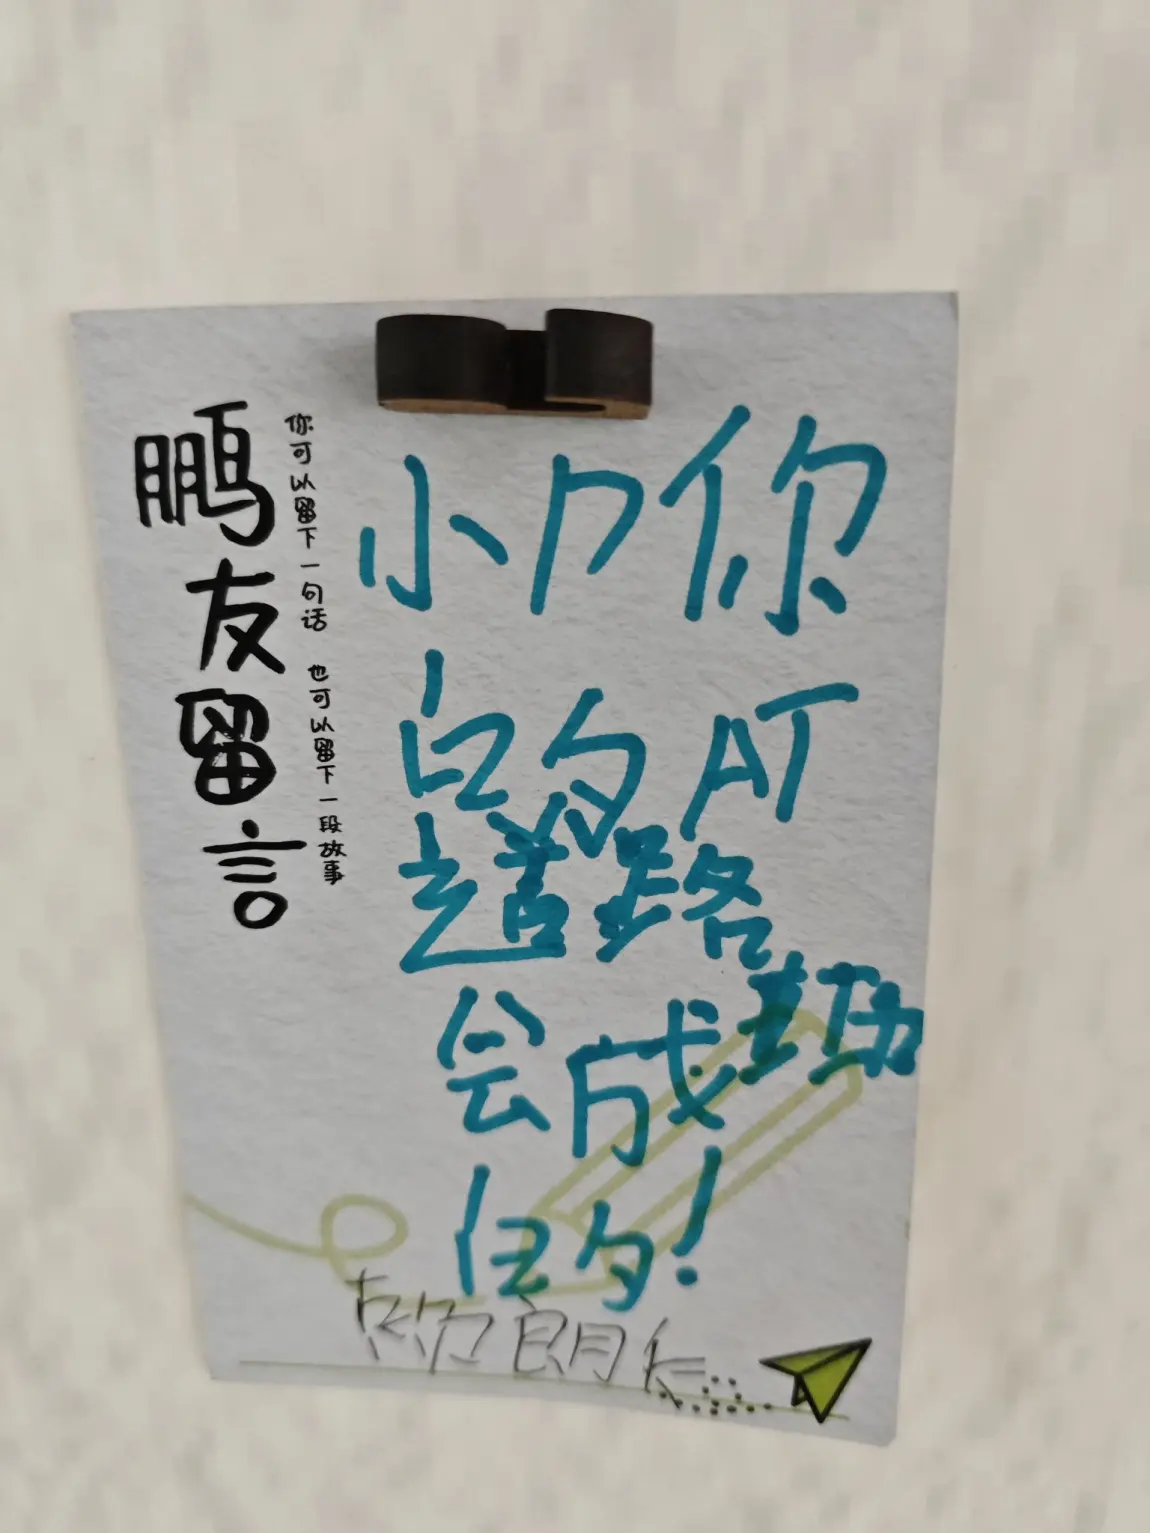 鹏友留言
你可以留下一句话 也可以留下一段故事
小卩你
的AI
道路
会成功
的!